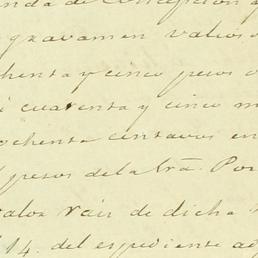 nda de Concepcion
gravamen valios
henta y cinco pesos
cuarenta y cinco
ochenta centavos en
pesos de la trã. Por
valor raiz de dicha
14. del espediente